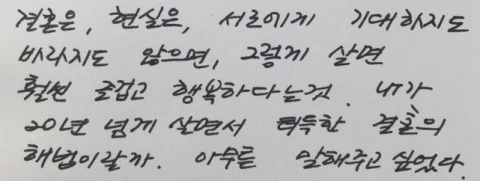 결혼은, 현실은, 서로에게 기대하지도
바라지도 않으면, 그렇게 살면
훨씬 즐겁고 행복하다는것. 내가
20년 넘게 살면서 터득한 결혼의
해법이랄까. 아무튼 말해주고 싶었다.